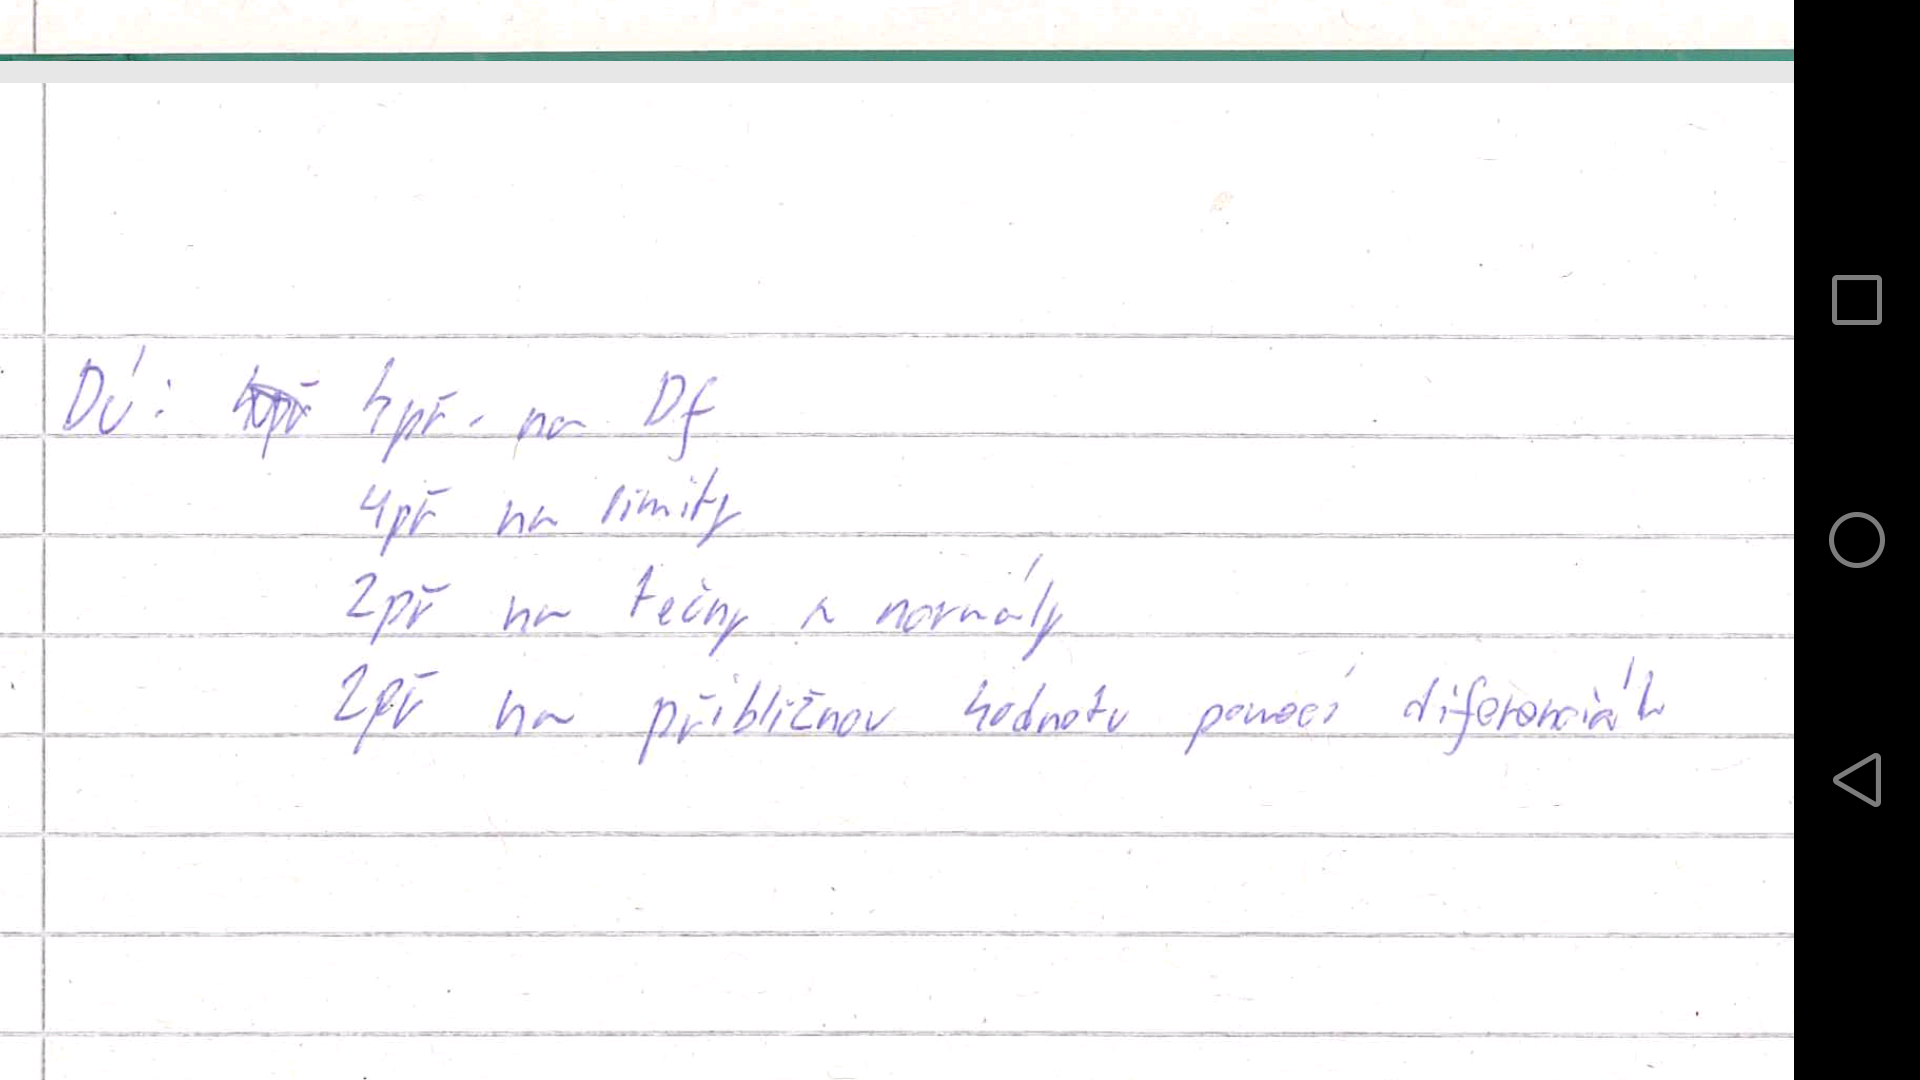 DÚ: 4př. na Df
4př na limity
2př na tečny a normály
2př na přibližnou hodnotu pomocí diferenciálu